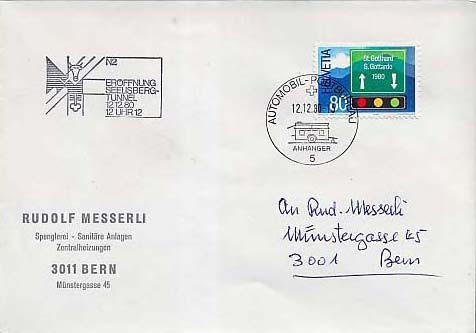 N2
ERÖFFNUNG
SEELISBERG-
TUNNEL
12.12.80
12 UHR 12
AUTOMOBIL-
12.12.80
ANHÄNGER
5
HELVETIA
80
St. Gotthard
S. Gottardo
1980
RUDOLF MESSERLI
Spenglerei - Sanitäre Anlagen
Zentralheizungen
3011 BERN
Münstergasse 45
An Rud. Messerli
Münstergasse 45
3001 Bern